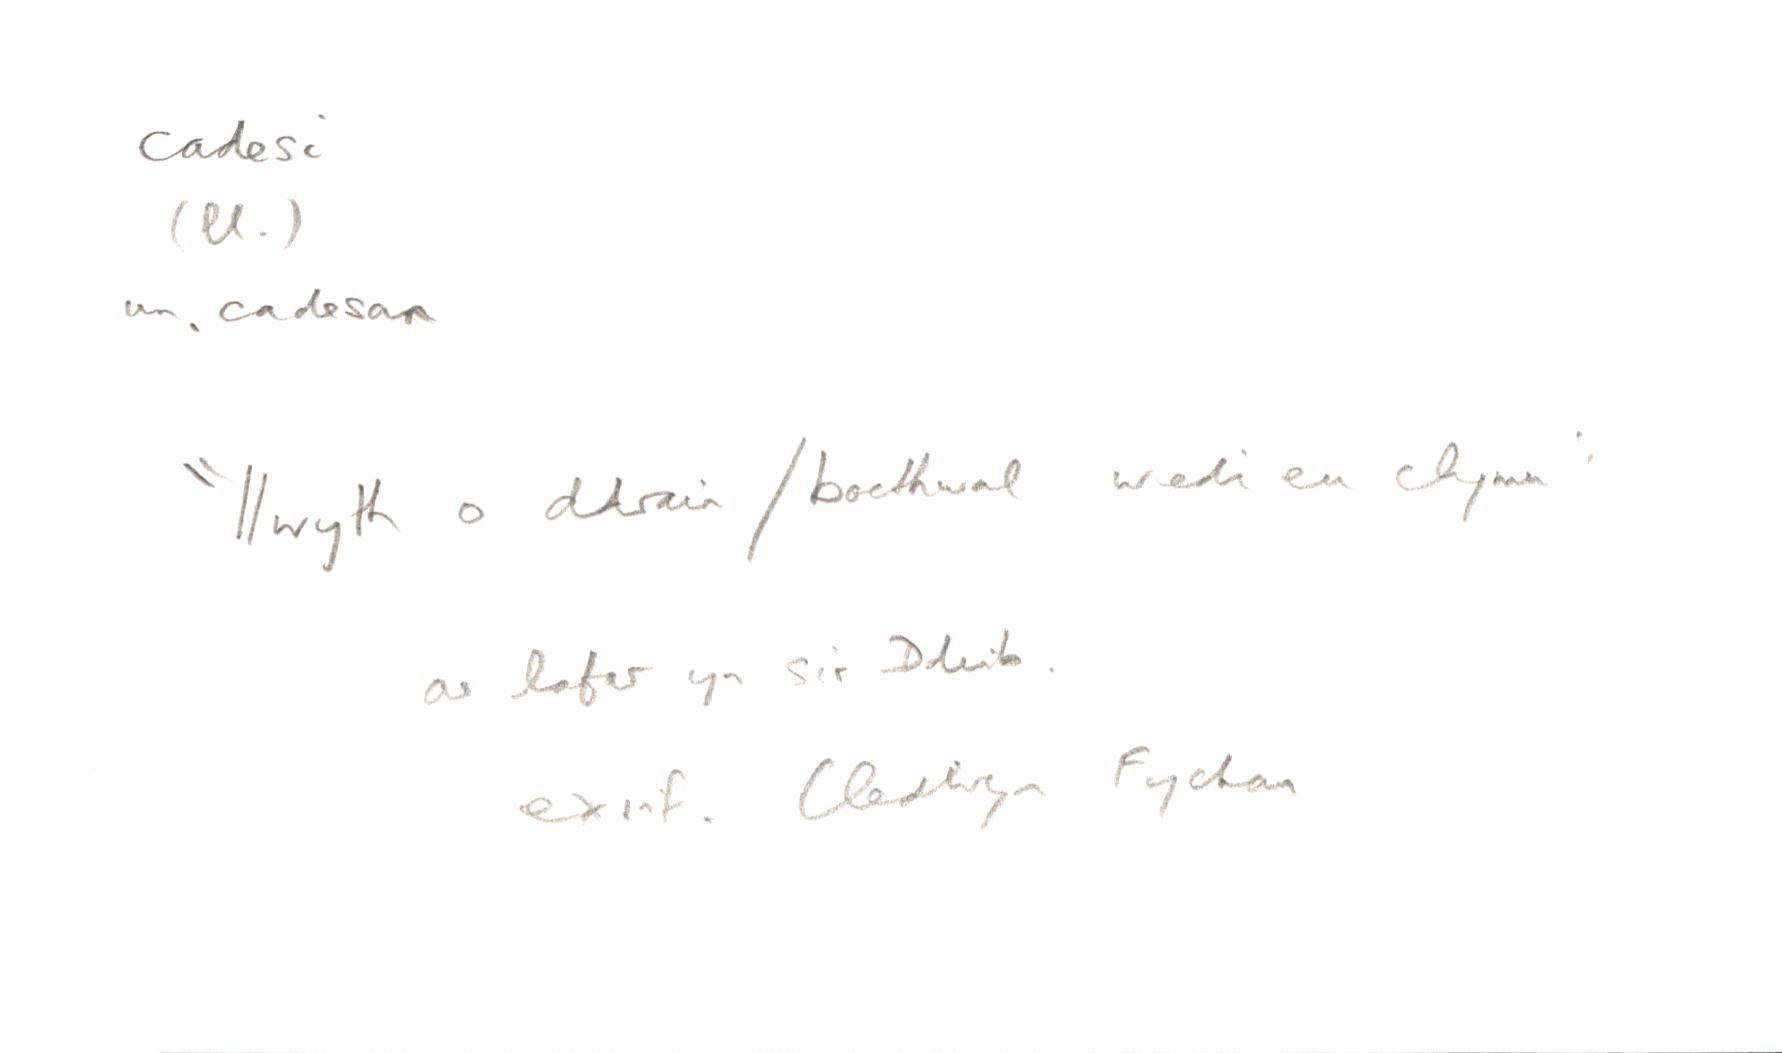 cadesi
(ll.)
un. cadesan
"llwyth o ddrain / boethwal wedi eu clymu"
ar lafar yn sir Ddinb.
ex inf. Cledwyn Fychan